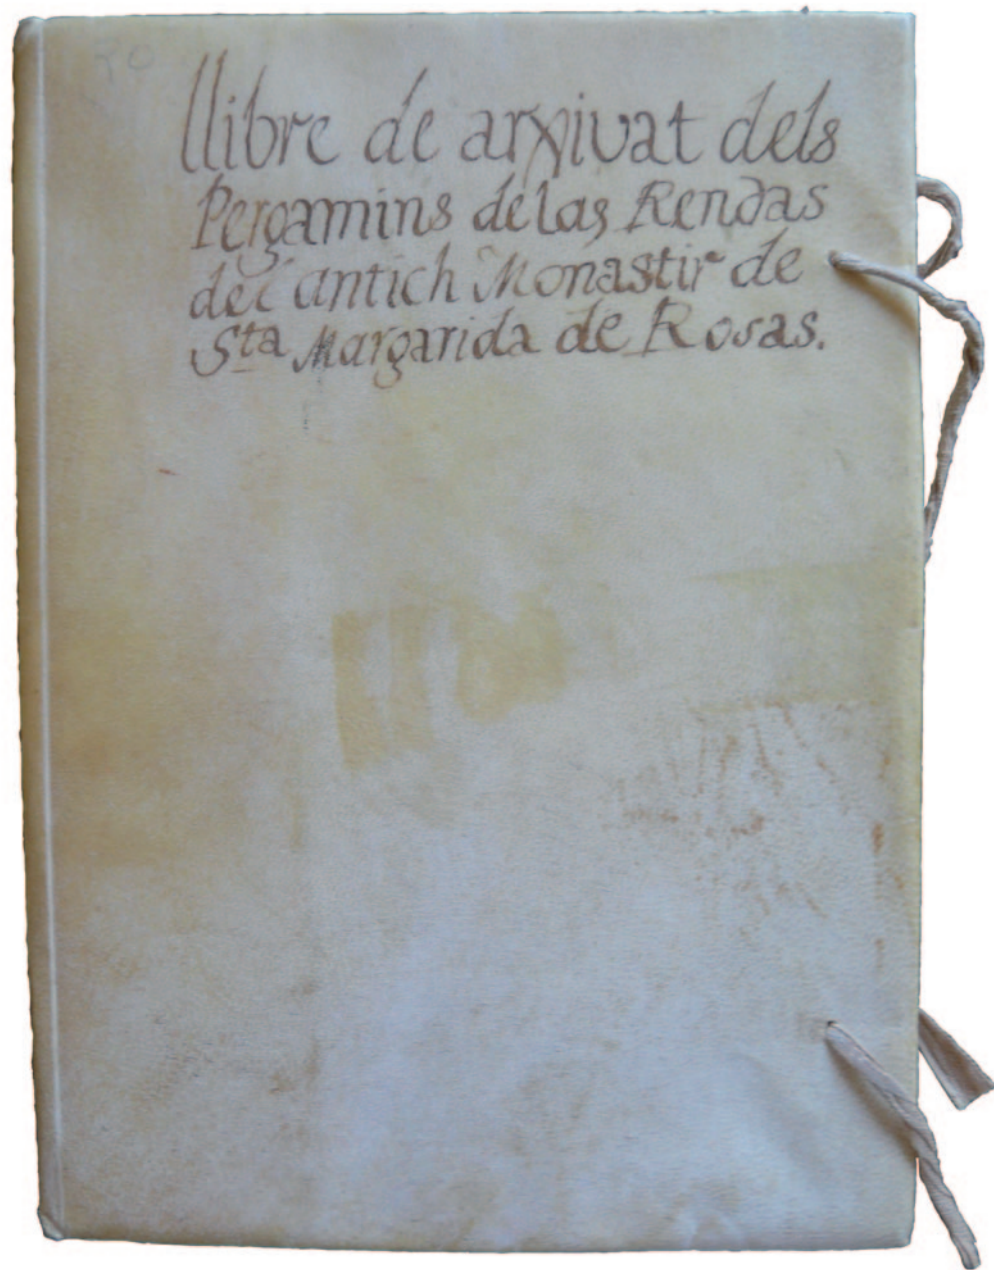 llibre de arxivat dels
Pergamins de las Rendas
del antich Monastir de
Sta Margarida de Rosas.